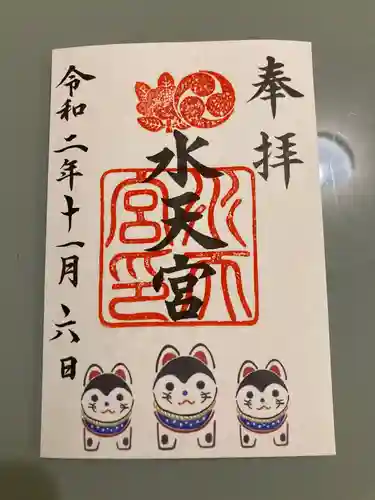 奉拝
水天宮
令和二年十一月六日